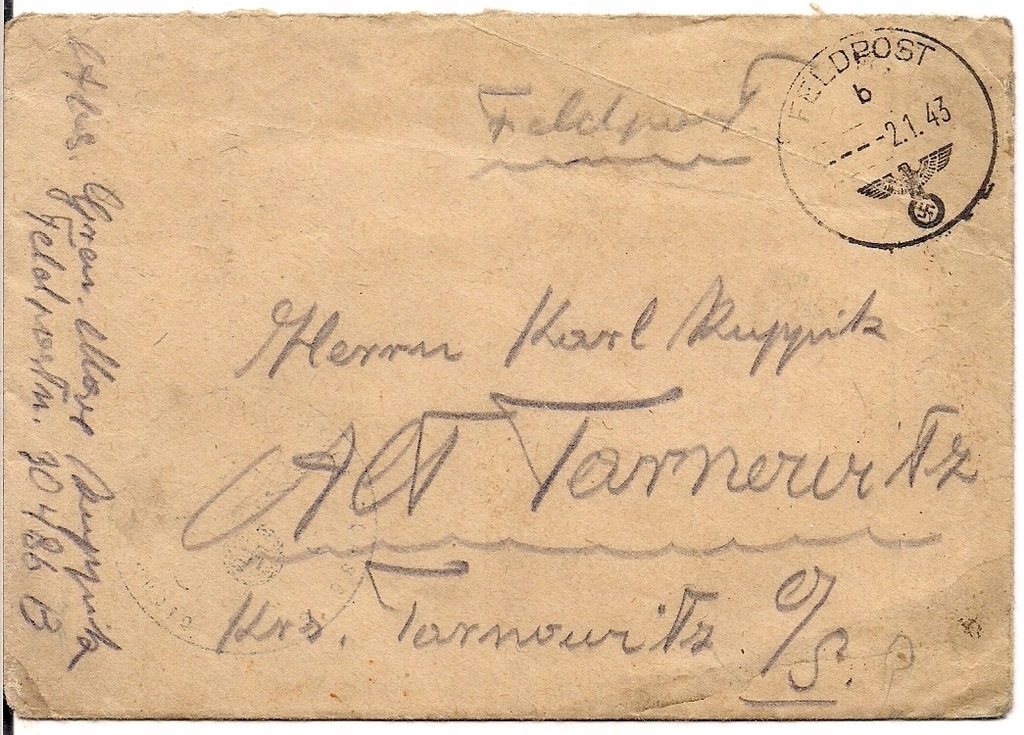 FELDPOST
b
-2.1.43
Feldpost
Herrn Karl Ruppik
Alt Tarnowitz
Krs. Tarnowitz O/S.
Abs. Gren. Max Ruppik
Feldpostn. 30486 B